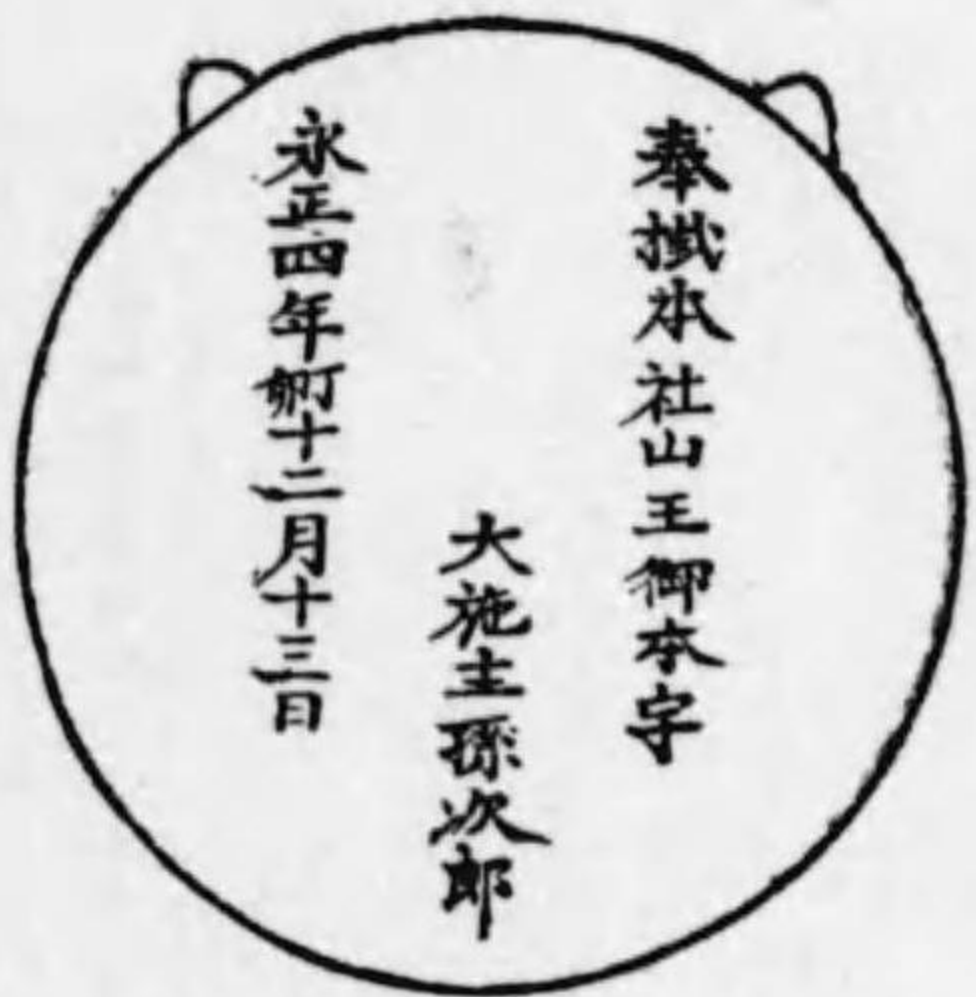 奉掛本社山王御本字
大施主孫次郎
永正四年丁卯十二月十三日